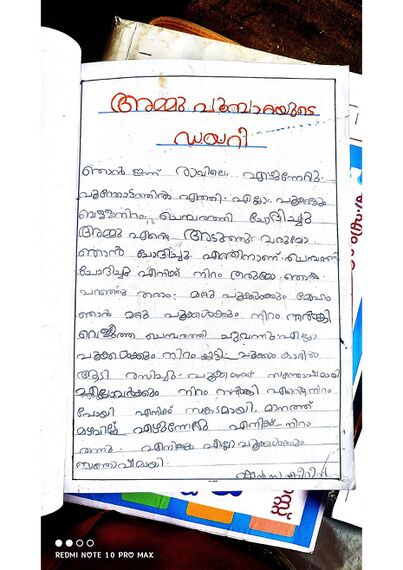 അമ്മു പൂമ്പാറ്റയുടെ
ഡയറി
ഞാൻ ഇന്ന് രാവിലെ എഴുന്നേറ്റു.
പൂന്തോട്ടത്തിൽ എത്തി. എല്ലാ പൂക്കളും
വെള്ളനിറം ചെമ്പരത്തി ചോദിച്ചു
അമ്മു എന്റെ അടുത്തു വരുമോ
ഞാൻ ചോദിച്ചു എന്തിനാണ് ചെമ്പരത്തി
ചോദിച്ചു എനിക്ക് നിറം തരുമോ ഞാൻ
പറഞ്ഞു തരാം. മറ്റു പൂക്കൾക്കും മോഹം
ഞാൻ മറ്റു പൂക്കൾക്കും നിറം നൽകി
വെളുത്ത ചെമ്പരത്തി ചുവന്നു എല്ലാ
പൂക്കൾക്കും നിറം കിട്ടി പൂക്കൾ കാറ്റിൽ
ആടി രസിച്ചു. പൂക്കൾക്ക് സന്തോഷമായി
എല്ലാവർക്കും നിറം നൽകി എന്റെ നിറം
പോയി എനിക്ക് സങ്കടമായി. മാനത്ത്
മഴവില്ല് എഴുന്നേറ്റു എനിക്ക് നിറം
തന്നു. എനിക്കും എല്ലാ പൂക്കൾക്കും
സന്തോഷമായി.
REDMI NOTE 10 PRO MAX